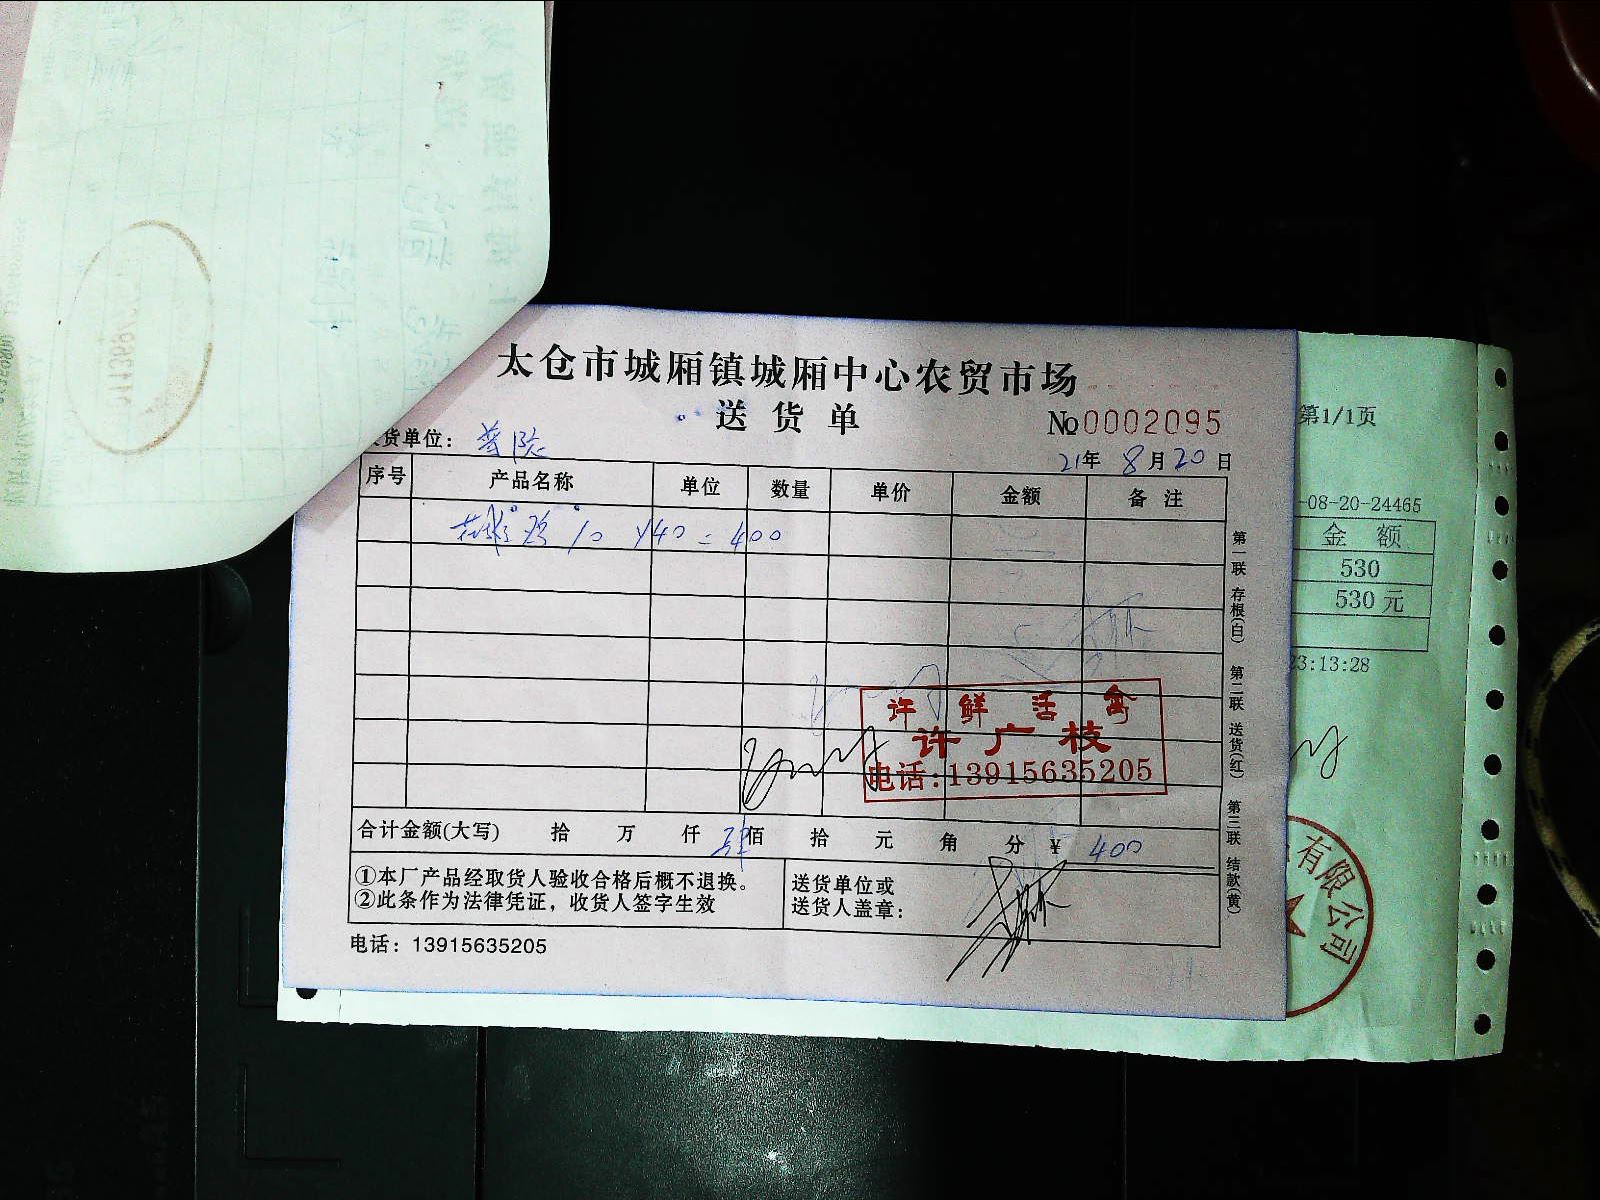 太仓市城厢镇城厢中心农贸市场
送货单
No0002095
货单位：
21年 8月20日
序号 产品名称 单位 数量 单价 金额 备注
10 ¥40=400
第一联 存根(白) 第二联 送货(红) 第三联 结款(黄)
许鲜活禽
许广枝
电话:13915635205
合计金额(大写) 拾 万 仟 肆佰 拾 元 角 分 ¥ 400
①本厂产品经取货人验收合格后概不退换。
②此条作为法律凭证，收货人签字生效
送货单位或
送货人盖章：
电话：13915635205
第1/1页
-08-20-24465
金额
530
530元
23:13:28
有限公司